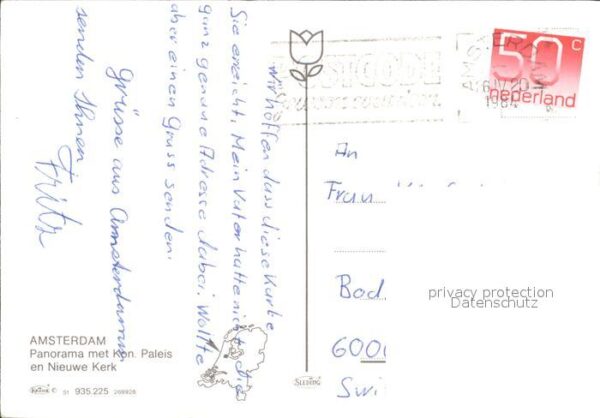 Wir hoffen dass diese Karte
Sie erreicht. Mein Vater hatte nicht die
ganz genaue Adresse dabei. Wollte
aber einen Gruss senden.
Grüsse aus Amsterdam
senden Ihnen
Fritz
AMSTERDAM
Panorama met Kon. Paleis
en Nieuwe Kerk
51 935.225
POSTCODE
AMSTERDAM
1984
50 c
nederland
An
Frau
Bad
600
Swi
privacy protection
Datenschutz